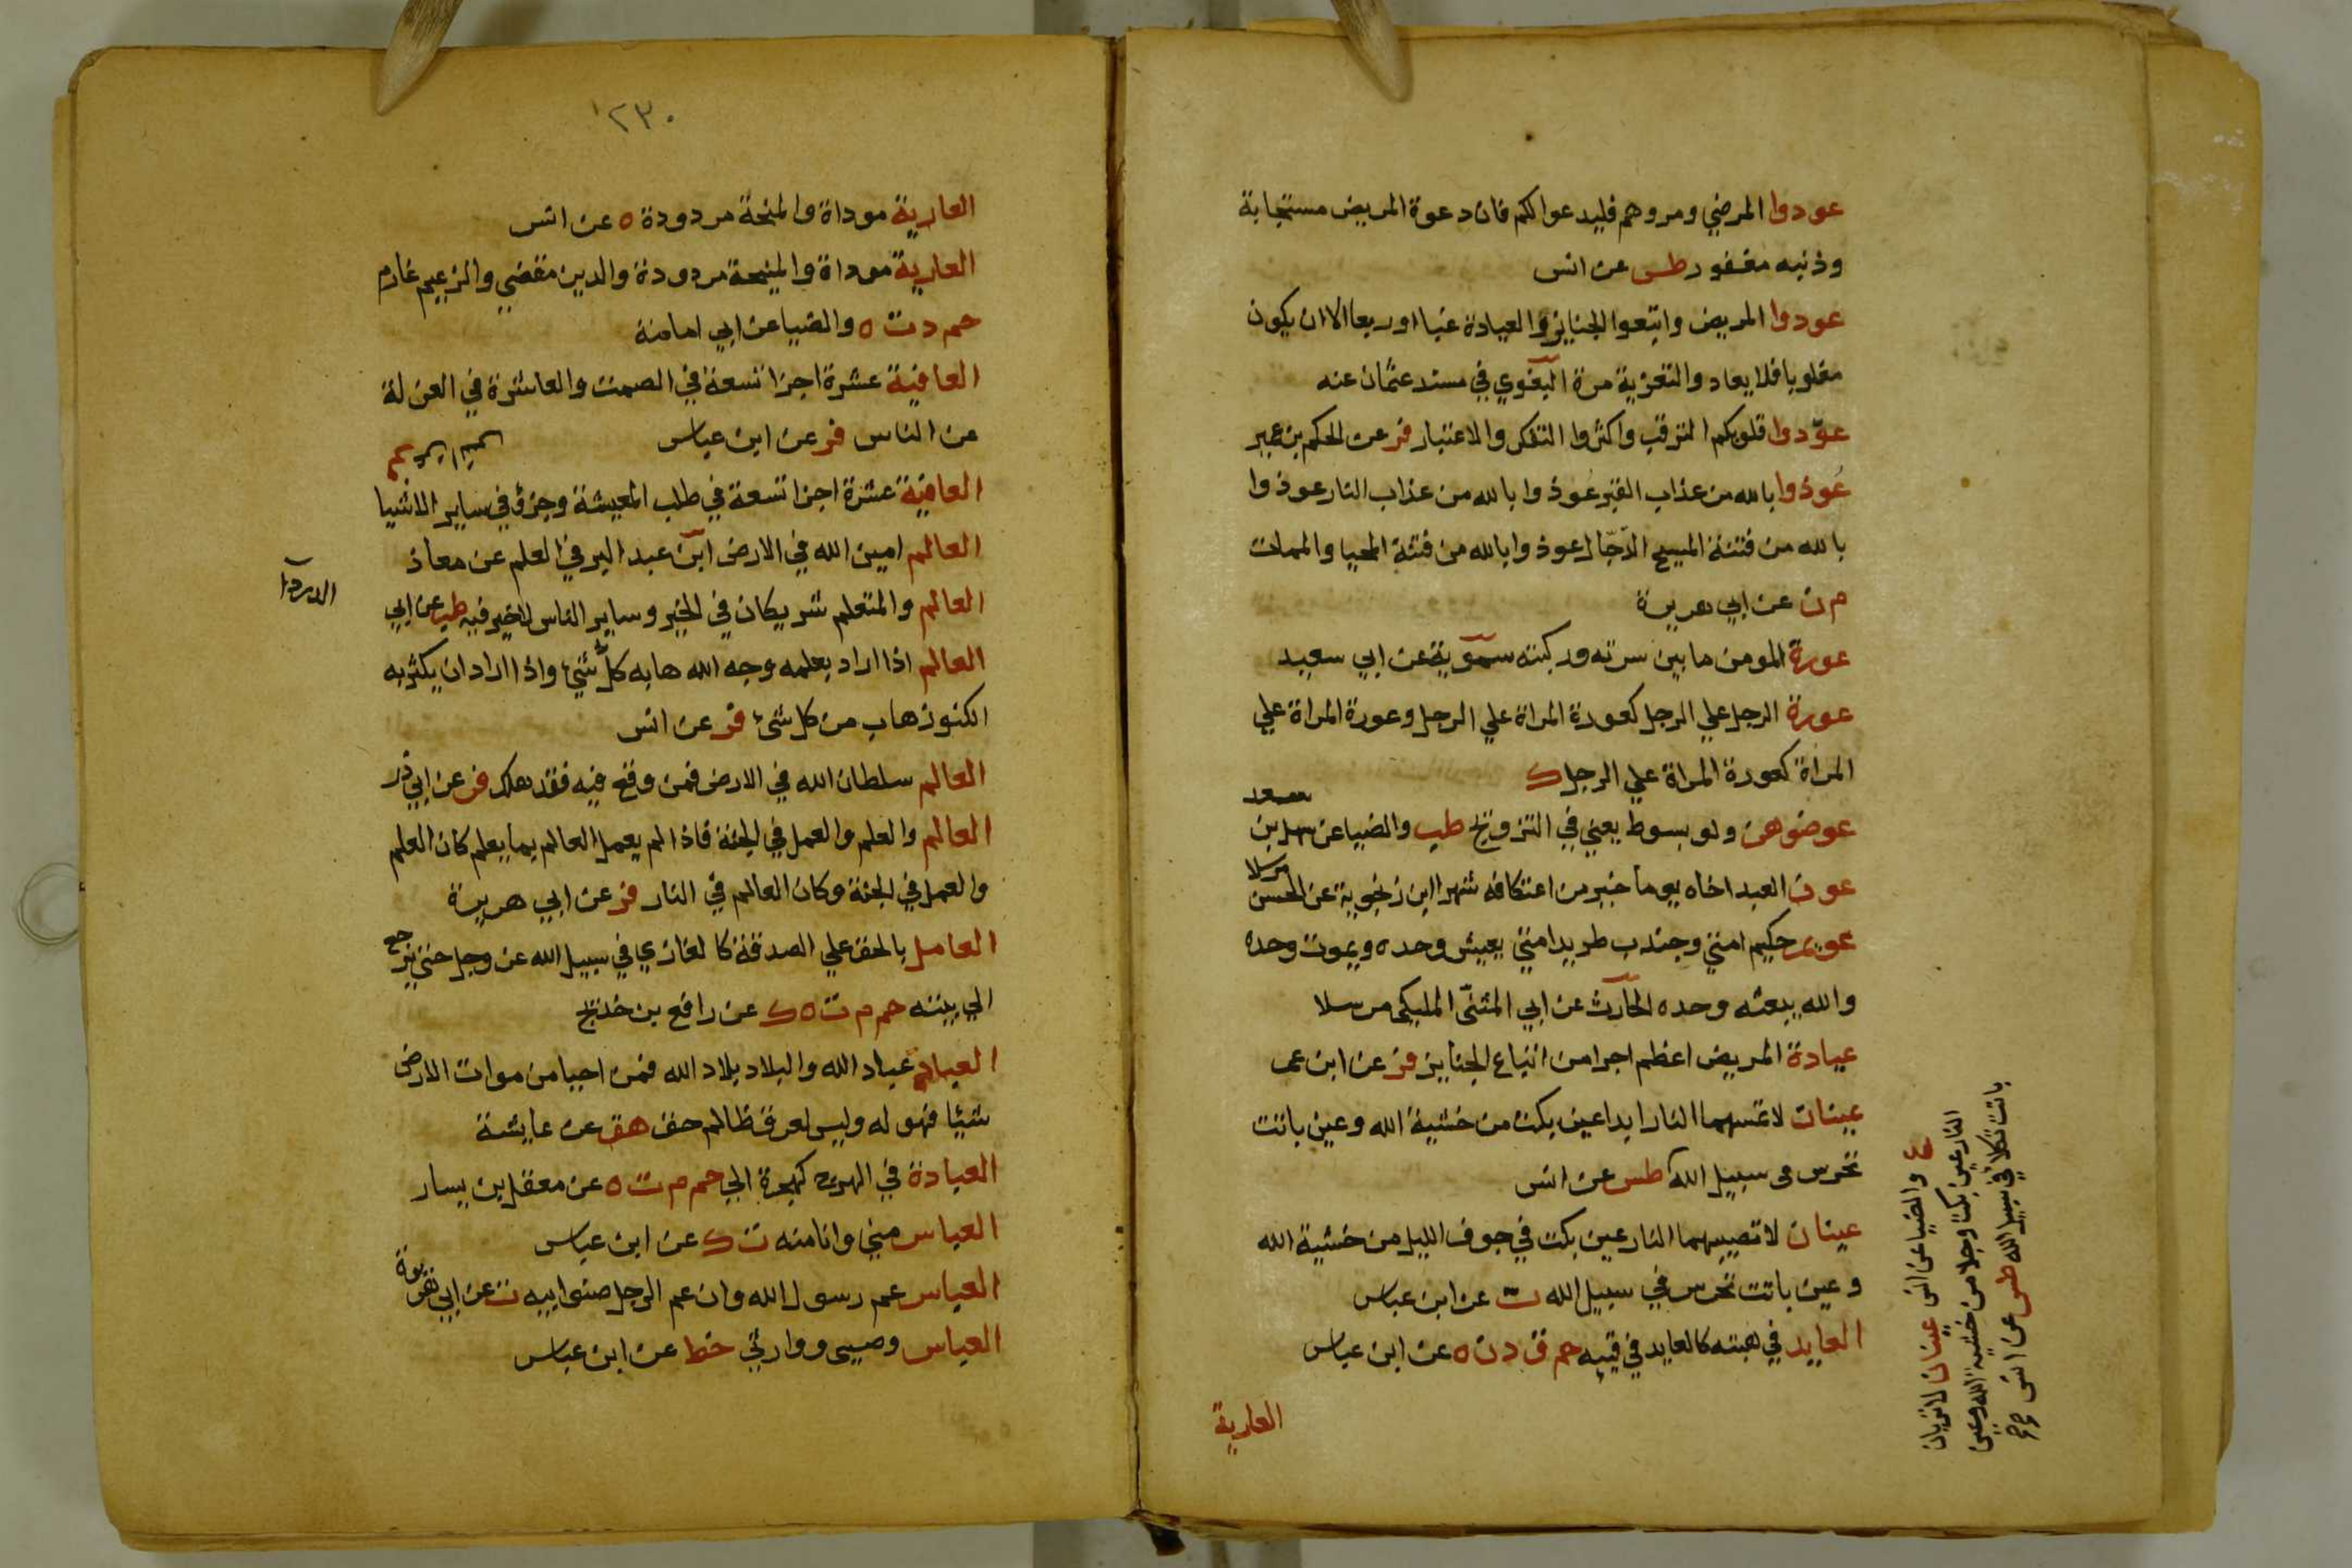 عودوا المرضي ومروهم فليدعوا لكم فان دعوة المريض مستجابة
وذنبه مغفور طس عن انس
عودوا المريض واتبعوا الجنايز والعيادة غبا او ربعا الا ان يكون
مغلوبا فلا يعاد والتعزية مرة البغوي في مسند عثمان عنه
عوّدوا قلوبكم الترقب واكثروا التفكر والاعتبار فر عن الحكم بن عمير
عُوذوا بالله من عذاب القبر عوذوا بالله من عذاب النار عوذوا
بالله من فتنة المسيح الدّجّال عوذوا بالله من فتنة المحيا والممات
م ن عن ابي هريرة
عورة المومن ما بين سرته وركبته سمّوية عن ابي سعيد
عورة الرجل علي الرجل كعورة المراة علي الرجل وعورة المراة علي
المراة كعورة المراة علي الرجل ك
عوضوهن ولو بسوط يعني في التزويج طب والضيا عن سهل بن سعد
عون العبد اخاه يوما خير من اعتكافه شهرا ابن زنجوية عن الحسن مرسلا
عويمر حكيم امتي وجندب طريد امتي يعيش وحده ويموت وحده
والله يبعثه وحده الحارث عن ابي المثنّى المليكي مرسلا
عيادة المريض اعظم اجرا من اتباع الجنايز فر عن ابن عمر
عينان لا تمسهما النار ابدا عين بكت من خشية الله وعين باتت
تحرس في سبيل الله طس عن انس
عينان لا تصيبهما النار عين بكت في جوف الليل من خشية الله
وعين باتت تحرس في سبيل الله ت عن ابن عباس
العايد في هبته كالعايد في قييه حم ق د ن ه عن ابن عباس
العارية
والضيا عن انس عينان لا تريان
النار عين بكت وجلا من خشية الله وعين
باتت تكلا في سبيل الله طس عن انس
١٢٣٠
العارية موداة والمنحة مردودة ه عن انس
العارية موداة والمنيحة مردودة والدين مقضي والزعيم غارم
حم د ت ه والضيا عن ابي امامة
العافية عشرة اجزا تسعة في الصمت والعاشرة في العزلة
عن الناس فر عن ابن عباس
العافية عشرة اجزا تسعة في طلب المعيشة وجزؤ في ساير الاشيا
العالم امين الله في الارض ابن عبد البر في العلم عن معاذ
العالم والمتعلم شريكان في الخير وساير الناس لا خير فيه طب عن ابي
الدردا
العالم اذا اراد بعلمه وجه الله هابه كلّ شيء واذا اراد ان يكثر به
الكنوز هاب من كل شيء فر عن انس
العالم سلطان الله في الارض فمن وقع فيه فقد هلك فر عن ابي ذر
العالم والعلم والعمل في الجنة فاذا لم يعمل العالم بما يعلم كان العلم
والعمل في الجنة وكان العالم في النار فر عن ابي هريرة
العامل بالحق علي الصدقة كالغازي في سبيل الله عز وجل حتي يرجع
الي بيته حم م ت ه ك عن رافع بن خديج
العباد عباد الله والبلاد بلاد الله فمن احيا من موات الارض
شيئا فهو له وليس لعرق ظالم حق هق عن عايشة
العبادة في الهرج كهجرة الي حم م ت ه عن معقل بن يسار
العباس مني وانا منه ت ك عن ابن عباس
العباس عم رسول الله وان عم الرجل صنو ابيه ت عن ابي هريرة
العباس وصيي ووارثي خط عن ابن عباس